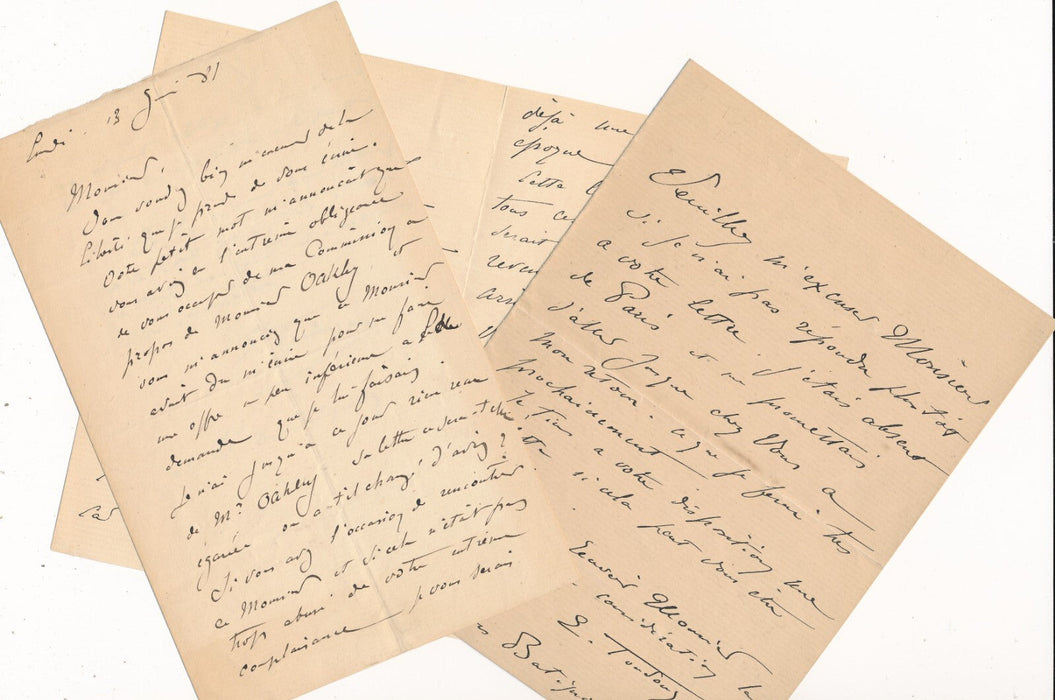 Lundi 13 Juin 81
Monsieur,
Vous voudrez bien m'excuser de la
liberté que je prends de vous écrire.
Votre petit mot m'annonçait que
vous aviez eu l'extrême obligeance
de vous occuper de ma Commission a
propos de Monsieur Oakley et
vous m'annonciez que ce Monsieur
avait du m'écrire pour me faire
une offre un peu inférieure a la
demande que je lui faisais
Je n'ai jusqu'a ce jour rien recu
de Mr Oakley sa lettre se serait elle
égarée ou a-t-il changé d'avis?
Si vous avez l'occasion de rencontrer
ce Monsieur et si cela n'était pas
trop abuser de votre extrême
complaisance je vous serais
déjà une
époque
cette
tous ce
serait
revenu
arri
car
Veuillez m'excuser Monsieur
si je n'ai pas répondu plustôt
a votre lettre. j'étais absent
de Paris et me promettais
d'aller jusque chez Vous a
mon retour. ce que je ferai très
prochainement
Je tiens a votre disposition une
si cela peut vous être
Recevez Monsieur la
considération
E. Toudouze
Batign